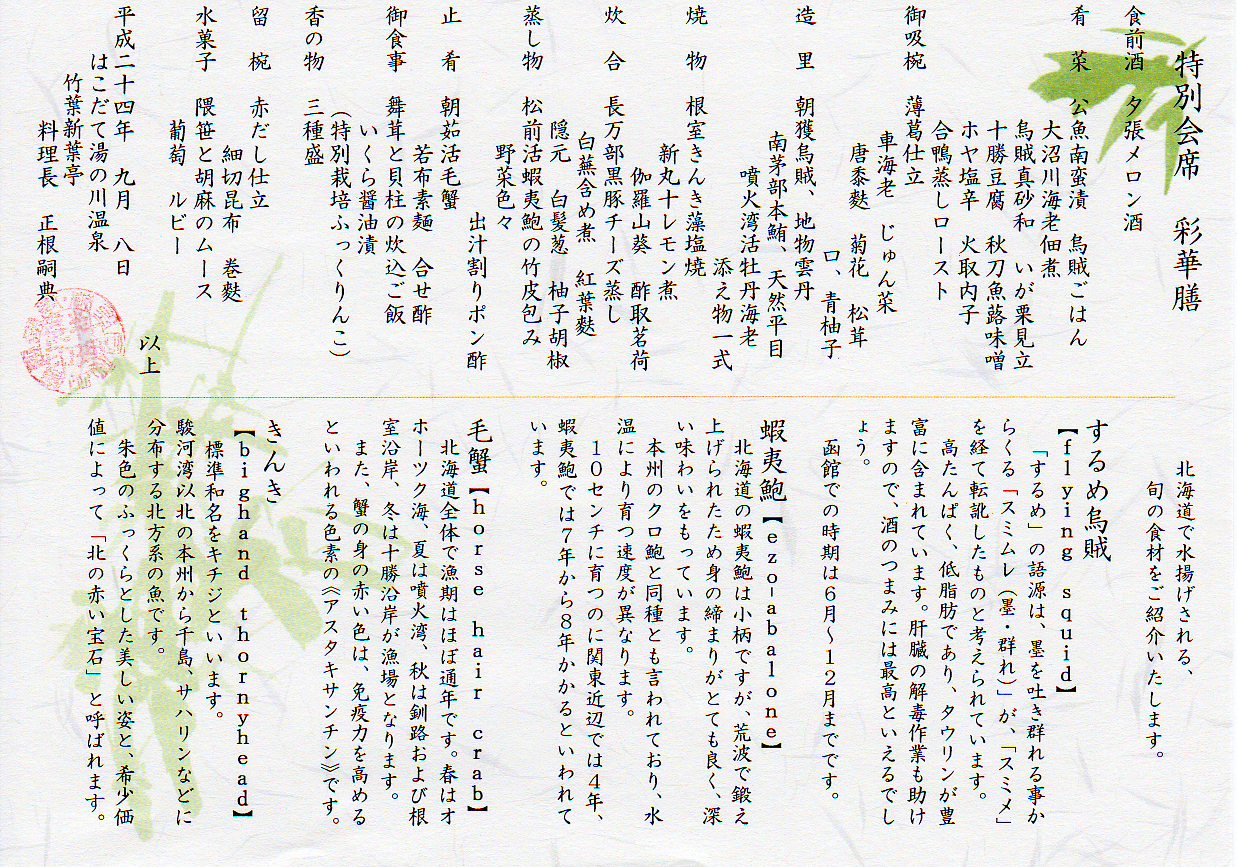 特別会席　彩華膳
食前酒　夕張メロン酒
肴　菜　公魚南蛮漬　烏賊ごはん
大沼川海老佃煮
烏賊真砂和　いが栗見立
十勝豆腐　秋刀魚蕗味噌
ホヤ塩辛　火取内子
合鴨蒸しロースト
御吸椀　薄葛仕立
車海老　じゅん菜
唐黍麩　菊花　松茸
口、青柚子
造　里　朝獲烏賊、地物雲丹
南茅部本鮪、天然平目
噴火湾活牡丹海老
添え物一式
焼　物　根室きんき藻塩焼
新丸十レモン煮
伽羅山葵　酢取茗荷
炊　合　長万部黒豚チーズ蒸し
白蕪含め煮　紅葉麩
隠元　白髪葱　柚子胡椒
蒸し物　松前活蝦夷鮑の竹皮包み
野菜色々
出汁割りポン酢
止　肴　朝茹活毛蟹
若布素麺　合せ酢
御食事　舞茸と貝柱の炊込ご飯
いくら醤油漬
（特別栽培ふっくりんこ）
香の物　三種盛
留　椀　赤だし仕立
細切昆布　巻麩
水菓子　隈笹と胡麻のムース
葡萄　ルビー
以上
平成二十四年　九月　八日
はこだて湯の川温泉
竹葉新葉亭
料理長　正根嗣典
北海道で水揚げされる、
旬の食材をご紹介いたします。
するめ烏賊
【flying squid】
「するめ」の語源は、墨を吐き群れる事か
らくる「スミムレ（墨・群れ）」が、「スミメ」
を経て転訛したものと考えられています。
高たんぱく、低脂肪であり、タウリンが豊
富に含まれています。肝臓の解毒作業も助け
ますので、酒のつまみには最高といえるでし
ょう。
函館での時期は６月～１２月までです。
蝦夷鮑【ezo-abalone】
北海道の蝦夷鮑は小柄ですが、荒波で鍛え
上げられたため身の締まりがとても良く、深
い味わいをもっています。
本州のクロ鮑と同種とも言われており、水
温により育つ速度が異なります。
１０センチに育つのに関東近辺では４年、
蝦夷鮑では７年から８年かかるといわれて
います。
毛蟹【horse hair crab】
北海道全体で漁期はほぼ通年です。春はオ
ホーツク海、夏は噴火湾、秋は釧路および根
室沿岸、冬は十勝沿岸が漁場となります。
また、蟹の身の赤い色は、免疫力を高める
といわれる色素の《アスタキサンチン》です。
きんき
【bighand thornyhead】
標準和名をキチジといいます。
駿河湾以北の本州から千島、サハリンなどに
分布する北方系の魚です。
朱色のふっくらとした美しい姿と、希少価
値によって「北の赤い宝石」と呼ばれます。